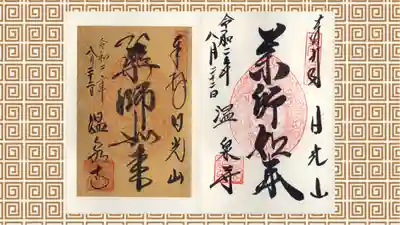 奉拝 日光山
薬師如来
令和二年
八月二十二日
温泉寺
奉拝 日光山
薬師如来
温泉寺
令和二年
八月二十二日